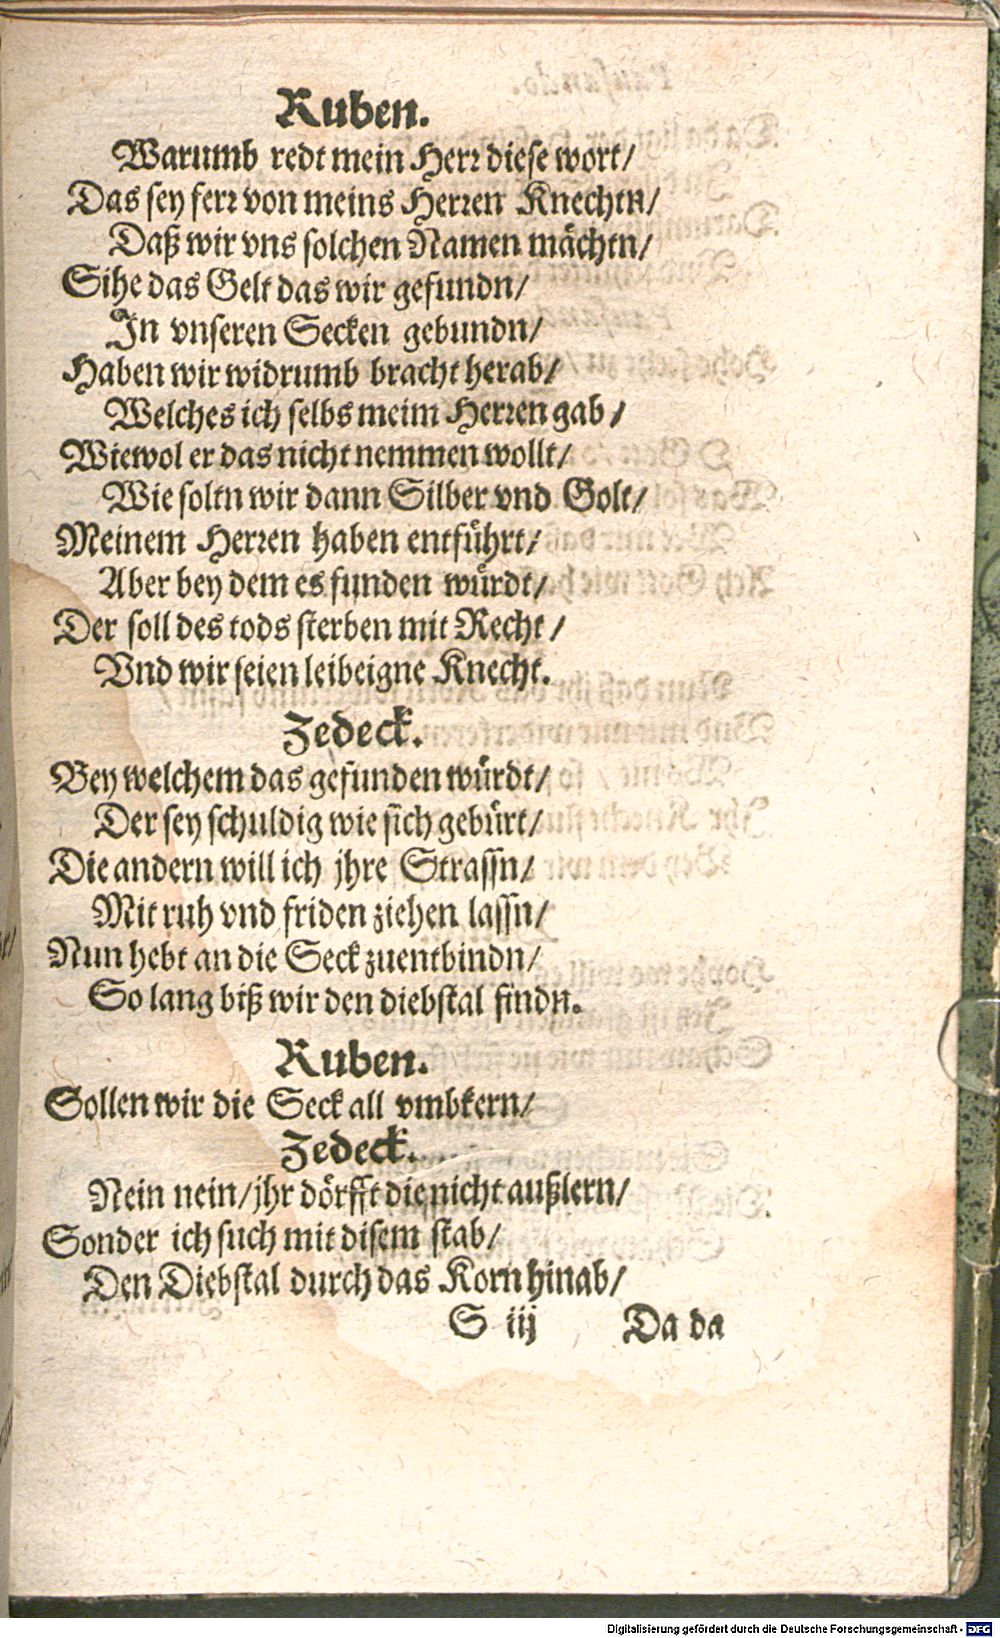 Ruben.
Warumb redt mein Herr diese wort/
Das sey ferr von meins Herren Knechtn/
Daß wir vns solchen Namen mächtn/
Sihe das Gelt das wir gefundn/
In vnseren Secken gebundn/
Haben wir widrumb bracht herab/
Welches ich selbs meim Herren gab/
Wiewol er das nicht nemmen wollt/
Wie soltn wir dann Silber vnd Golt/
Meinem Herren haben entführt/
Aber bey dem es funden würdt/
Der soll des tods sterben mit Recht/
Vnd wir seien leibeigne Knecht.
Zedeck.
Bey welchem das gefunden würdt/
Der sey schuldig wie sich gebürt/
Die andern will ich jhre Strassn/
Mit ruh vnd friden ziehen lassn/
Nun hebt an die Seck zuentbindn/
So lang biß wir den diebstal findn.
Ruben.
Sollen wir die Seck all vmbkern/
Zedeck.
Nein nein/jhr dörfft die nicht außlern/
Sonder ich such mit disem stab/
Den Diebstal durch das Korn hinab/
S iij Da da
Digitalisierung gefördert durch die Deutsche Forschungsgemeinschaft - DFG